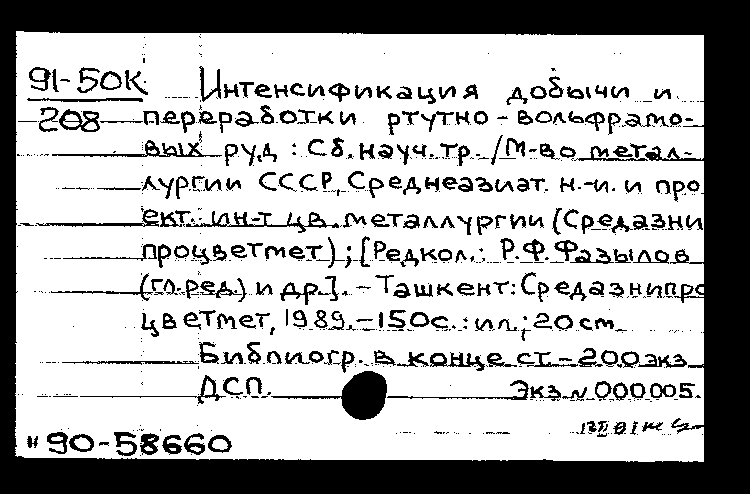 91-50К
208
Интенсификация добычи и
переработки ртутно-вольфрамо-
вых руд : Сб. науч. тр. / М-во метал-
лургии СССР, Среднеазиат. н.-и. и про
ект. ин-т цв. металлургии (Средазни
процветмет) ; [Редкол.: Р.Ф. Фазылов
(гл. ред.) и др.]. - Ташкент: Средазнипро
цветмет, 1989. - 150 с. : ил.; 20 см
Библиогр. в конце ст. - 200 экз
ДСП. Экз. N 000005.
" 90-58660